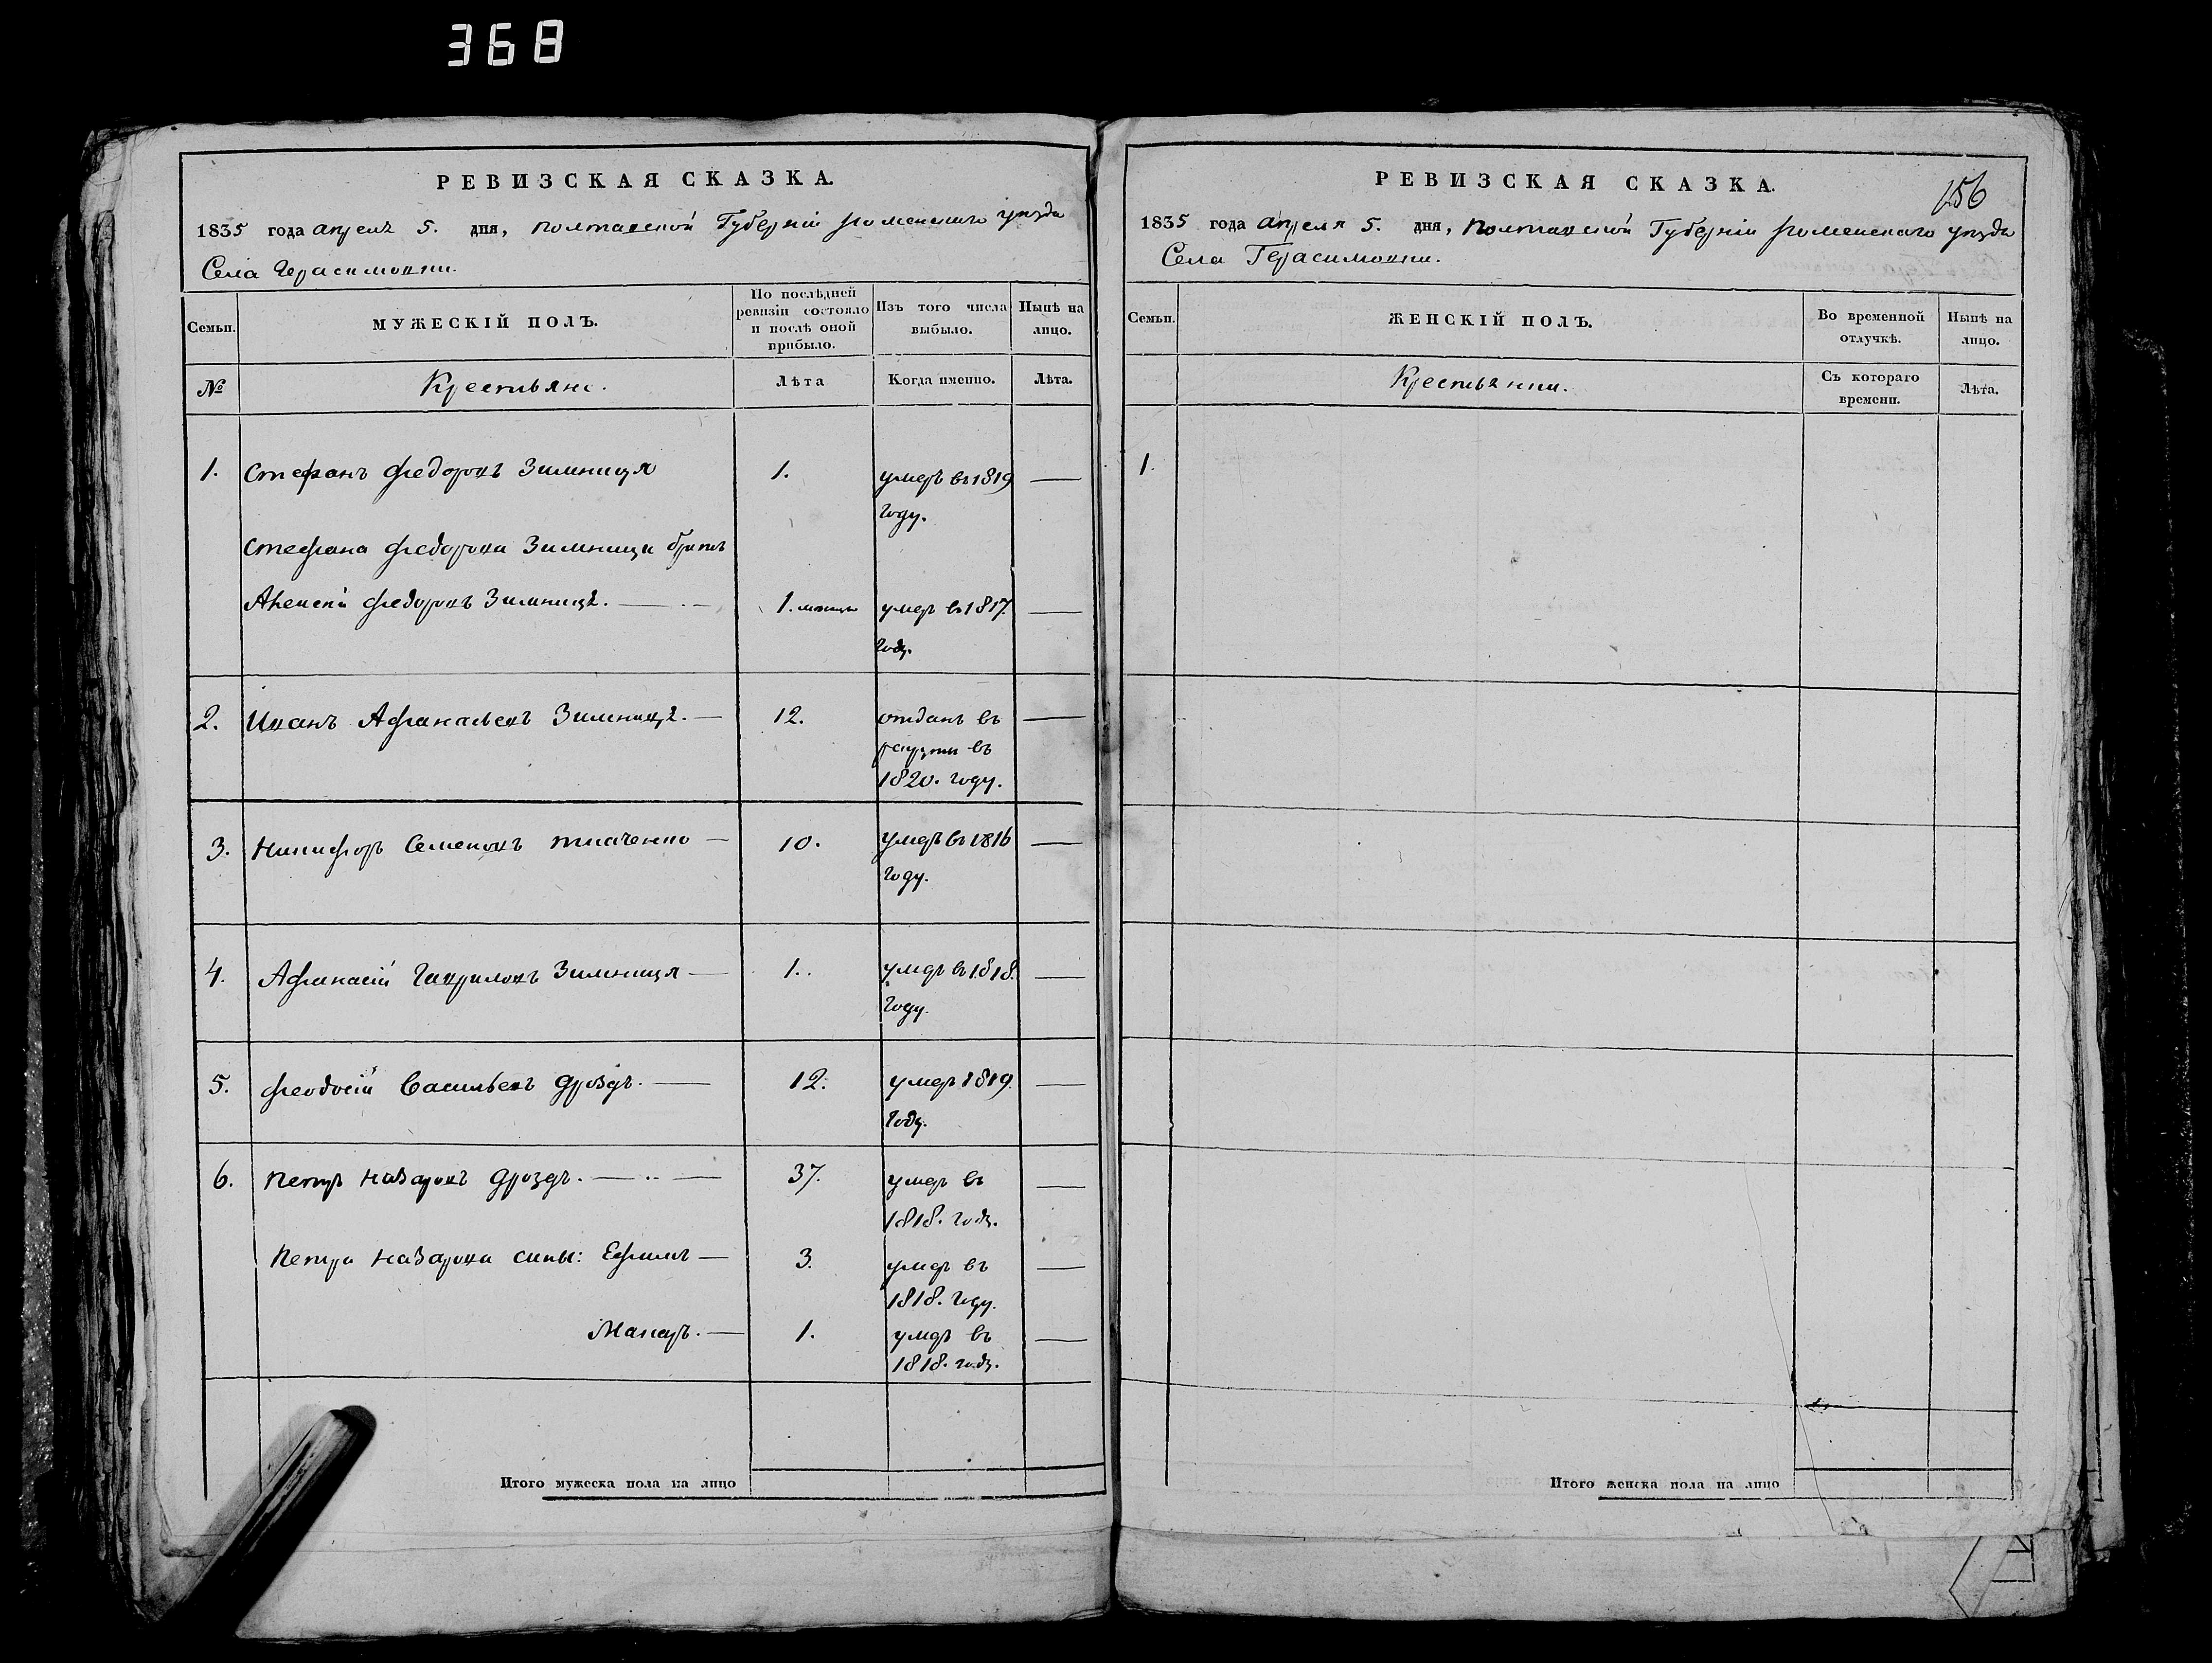 368
РЕВИЗСКАЯ СКАЗКА.
1835 года апреля 5. дня, Полтавской Губерніи Роменскаго уѣзда
Села Герасимовки.
Семьи. МУЖЕСКІЙ ПОЛЪ. По послѣдней ревизіи состояло и послѣ оной прибыло. Изъ того числа выбыло. Нынѣ на лицо.
№ Крестьяне. Лѣта Когда именно. Лѣта.
1. Стефанъ Федоровъ Зимница 1. умеръ въ 1819 —
году.
Стефана Федорова Зимници братъ
Алексѣй Федоровъ Зимница. — 1. месяца умеръ въ 1817. —
году.
2. Иванъ Афанасьевъ Зимница. — 12. отданъ въ —
рекруты въ
1820. году.
3. Никифоръ Семеновъ Ткаченко — 10. умеръ въ 1816 —
году.
4. Афанасій Гавриловъ Зимница — 1. умеръ въ 1818. —
году.
5. Феодосій Васильевъ Дроздъ. — 12. умеръ 1819. —
году.
6. Петръ Назаровъ Дроздъ. — 37. умеръ въ —
1818. году.
Петра Назарова сины: Ефимъ — 3. умеръ въ —
1818. году.
Макаръ. — 1. умеръ въ —
1818. году.
Итого мужеска пола на лицо
156
РЕВИЗСКАЯ СКАЗКА.
1835 года апреля 5. дня, Полтавской Губерніи Роменскаго уѣзда
Села Герасимовки.
Семьи. ЖЕНСКІЙ ПОЛЪ. Во временной отлучкѣ. Нынѣ на лицо.
Крестьянки. Съ котораго времени. Лѣта.
1.
Итого женска пола на лицо